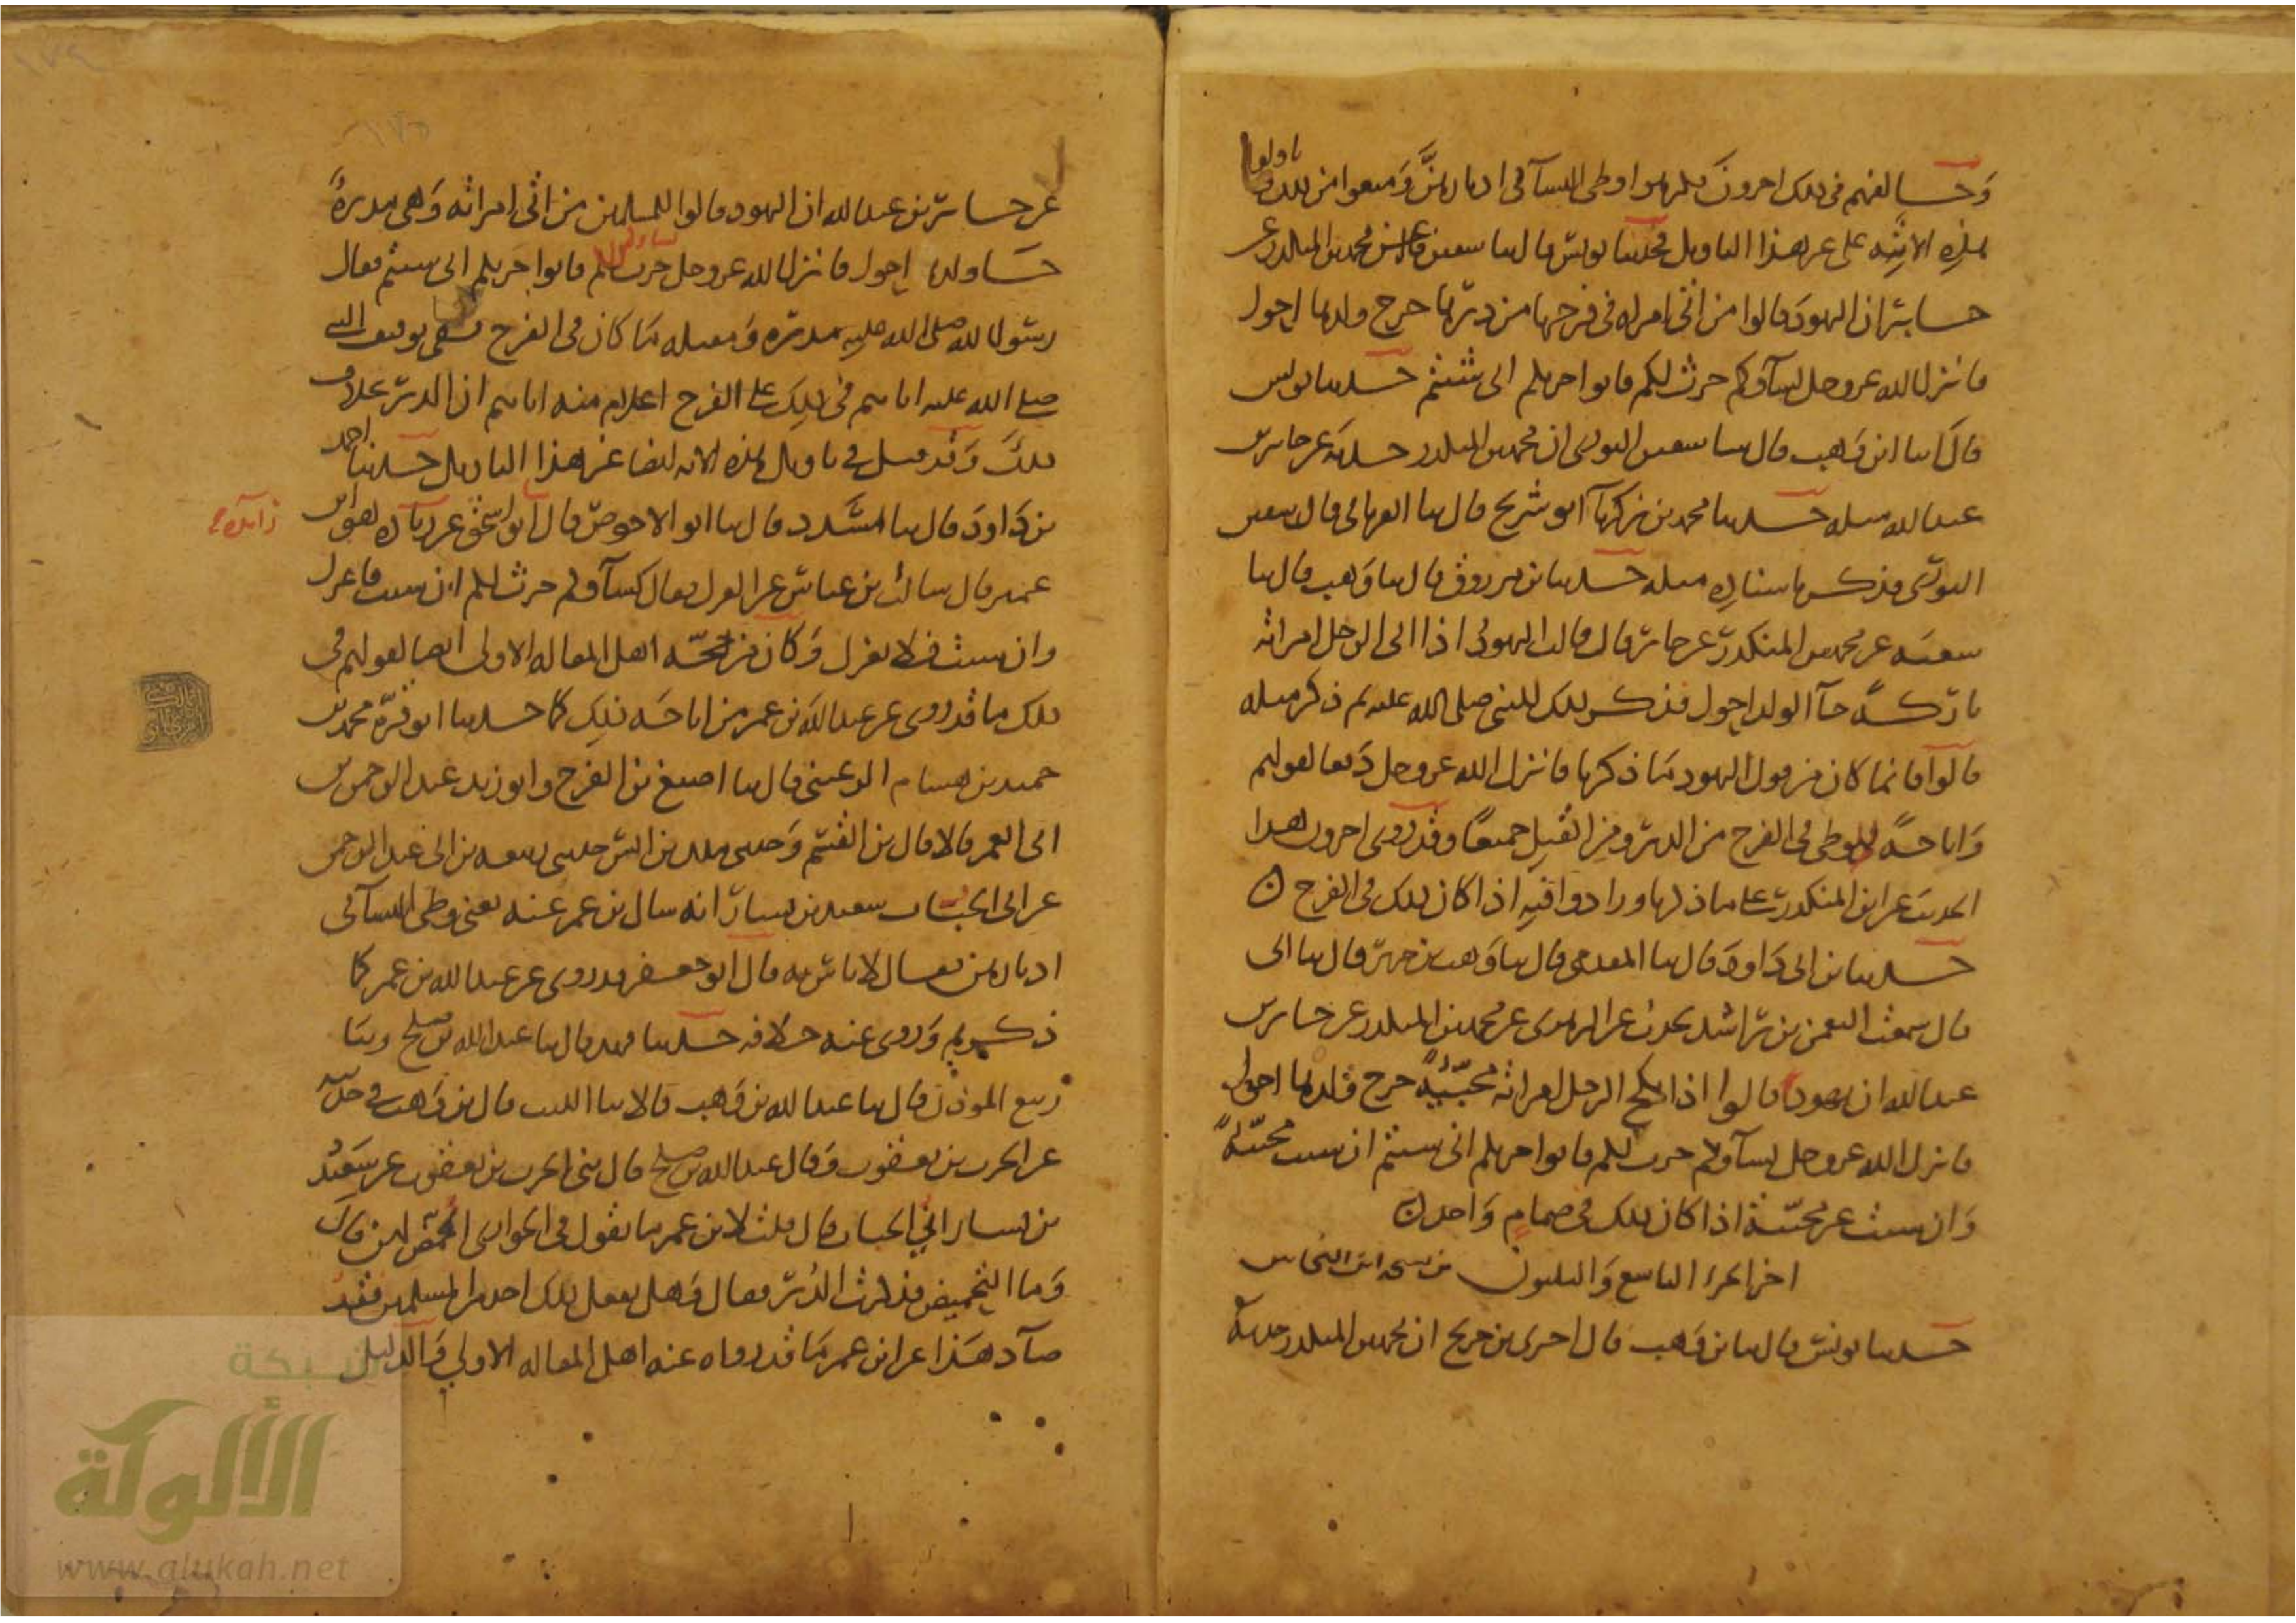 وخالفهم في ذلك اخرون فكرهوا وطى النسآ في ادبارهن ومنعوا من ذلك وتاولوا
هذه الاية على غير هذا التاويل حدثنا يونس قال ثنا سفين عن محمد بن المنكدر عن
جابر ان اليهود قالوا من اتى امراه في فرجها من دبرها خرج ولدها احول
فانزل الله عز وجل نسآوكم حرث لكم فاتوا حرثكم انى شئتم حدثنا يونس
قال انا ابن وهب قال ثنا سفين الثوري ان محمد بن المنكدر حدثه عن جابر بن
عبد الله مثله حدثنا محمد بن زكريآ ابو شريح قال ثنا الفريابي قال ثنا سفين
الثوري فذكر باسناده مثله حدثنا بن مرزوق قال ثنا وهب قال ثنا
شعبه عن محمد بن المنكدر عن جابر قال قالت اليهود اذا اتى الرجل امراته
باركة جآ الولد احول فذكر ذلك للنبي صلى الله عليه وسلم ثم ذكر مثله
قالوا فانما كان من قول اليهود ما ذكرنا فانزل الله عز وجل دفعا لقولهم
واباحة للوطى في الفرج من الدبر ومن القبل جميعا وقد روى اخرون هذا
الحديث عن ابن المنكدر على ما ذكرنا وزادوا فيه اذا كان ذلك في الفرج
حدثنا بن ابي داود قال ثنا المقدمي قال ثنا وهب بن جرير قال ثنا ابي
قال سمعت النعمن بن راشد يحدث عن الزهري عن محمد بن المنكدر عن جابر بن
عبد الله ان يهود قالوا اذا نكح الرجل امراته مجبية خرج ولدها احول
فانزل الله عز وجل نسآوكم حرث لكم فاتوا حرثكم انى شئتم ان شئت مجبية
وان شئت غير مجبية اذا كان ذلك في صمام واحد
اخر الجزا التاسع والثلثون من
حدثنا يونس قال ثنا بن وهب قال اخبرني بن جريج ان محمد بن المنكدر حدثه
عن جابر بن عبد الله ان اليهود قالوا للمسلمين من اتى امراته وهي مدبرة
جا ولدها احول فانزل الله عز وجل نساوكم حرث لكم فاتوا حرثكم انى شئتم فقال
رسول الله صلى الله عليه مدبرة ومقبله ما كان في الفرج ففي توقيف النبي
صلى الله عليه اياهم في ذلك على الفرج اعلام منه اياهم ان الدبر بخلاف
ذلك وقد قيل في تاويل هذه الايه ايضا غير هذا التاويل حدثنا احمد
بن داود قال ثنا مسدد قال ثنا ابو الاحوص قال ثنا ابو اسحق عن زايده هو ابن
زآيده
عمير قال سالت بن عباس عن العزل فقال نسآوكم حرث لكم ان شئت فاعزل
وان شئت فلا تعزل وكان من حجة اهل المقاله الاولى ايضا لقولهم في
ذلك ما قد روى عن عبد الله بن عمر من اباحة ذلك كما حدثنا ابو قرة محمد بن
حميد بن هشام الرعيني قال ثنا اصبغ بن الفرج وابو زيد عبد الرحمن بن
ابي الغمر قالا قال بن القسم وحدثني ملك بن انس حدثني ربيعه بن ابي عبد الرحمن
عن ابي الحباب سعيد بن يسار انه سال بن عمر عنه يعني وطى النسآ في
ادبارهن فقال لا باس به قال ابو جعفر قد روى عن عبد الله بن عمر كما
ذكرتم وروى عنه خلافه حدثنا فهد قال ثنا عبد الله بن صلح وثنا
ربيع الموذن قال ثنا عبد الله بن وهب قالا ثنا الليث قال بن وهب في حديثه
عن الحرث بن يعقوب وقال عبد الله بن صلح قال ثني الحرث بن يعقوب عن سعيد
بن يسار ابي الحباب قال قلت لابن عمر ما تقول في الجواري احمض لهن قال
وما التحميض فذكرت الدبر فقال وهل يفعل ذلك احد من المسلمين فقد
ضآد هذا عن ابن عمر ما قد رواه عنه اهل المقاله الاولى والدليل
شبكة
الألوكة
www.alukah.net